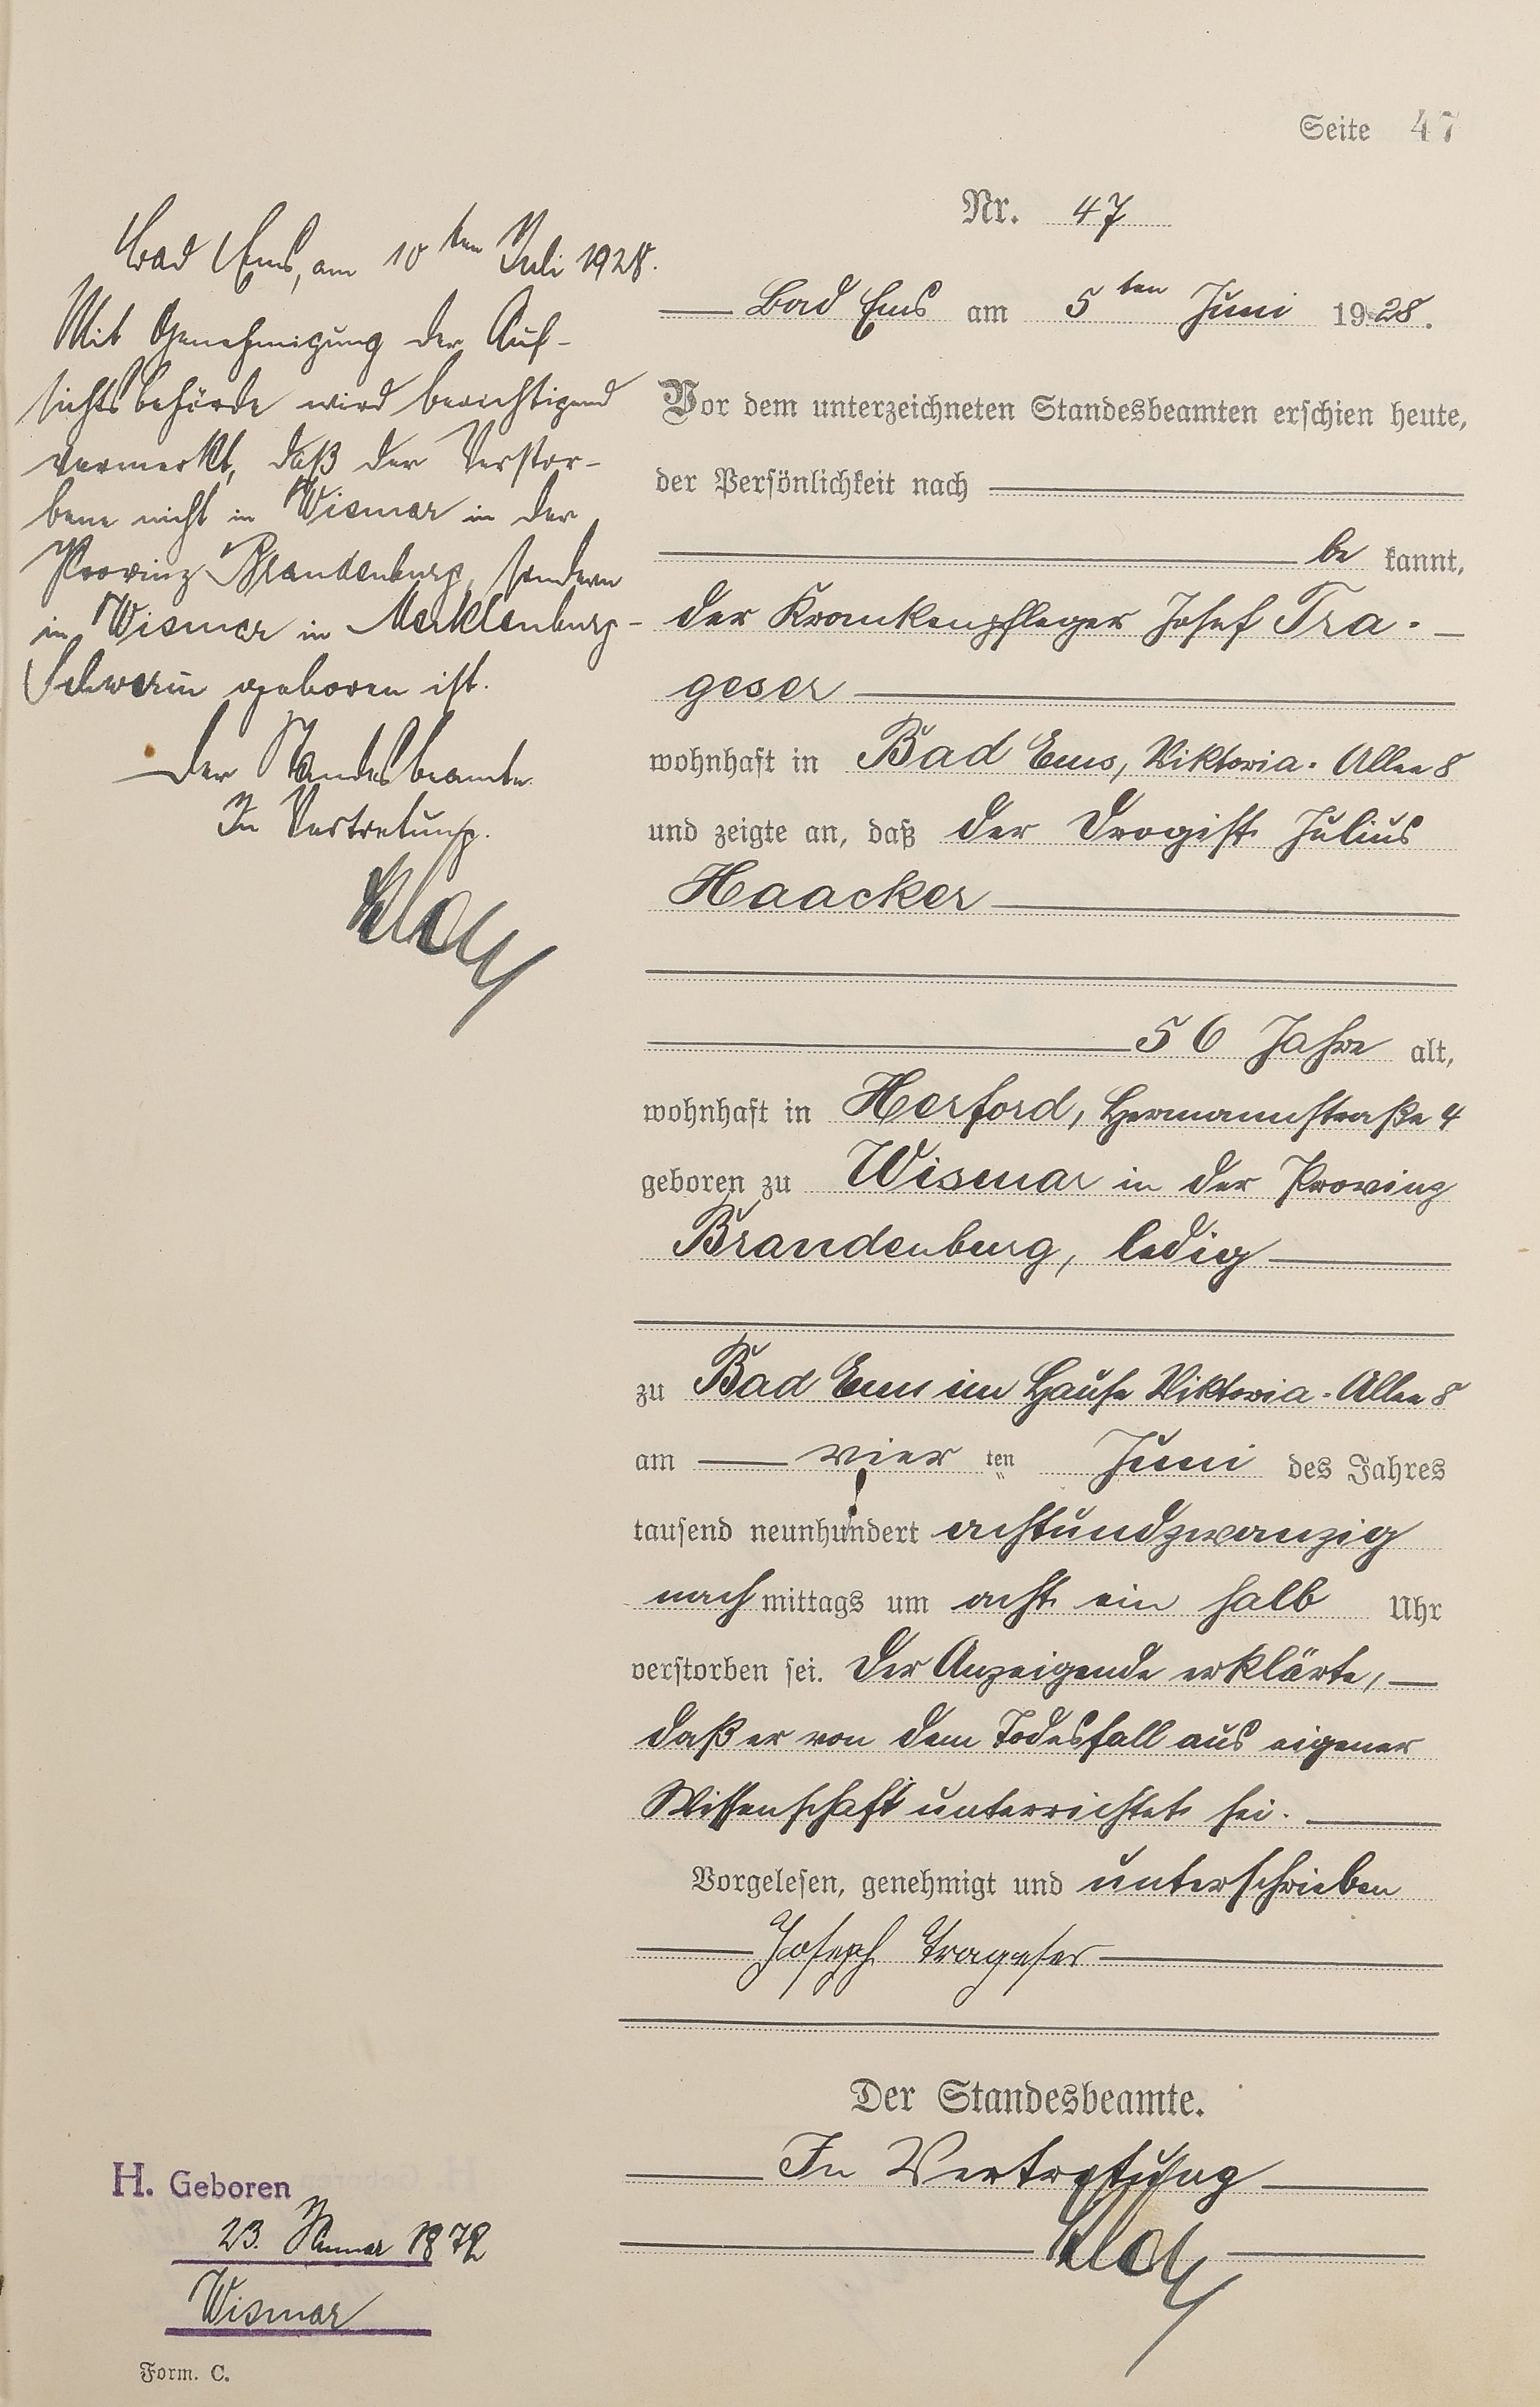 Seite 47
Nr. 47
Bad Ems am 5ten Juni 1928.
Vor dem unterzeichneten Standesbeamten erschien heute,
der Persönlichkeit nach
be kannt,
der Krankenpfleger Josef Tra-
geser
wohnhaft in Bad Ems, Viktoria-Allee 8
und zeigte an, daß der Drogist Julius
Haacker
56 Jahre alt,
wohnhaft in Herford, Hermannstraße 4
geboren zu Wismar in der Provinz
Brandenburg, ledig
zu Bad Ems im Hause Viktoria-Allee 8
am vier ten Juni des Jahres
tausend neunhundert achtundzwanzig
nach mittags um acht ein halb Uhr
verstorben sei. Der Anzeigende erklärte,
daß er von dem Todesfall aus eigener
Wissenschaft unterrichtet sei.
Vorgelesen, genehmigt und unterschrieben
Joseph Trageser
Der Standesbeamte.
In Vertretung
Bad Ems, am 10ten Juli 1928.
Mit Genehmigung der Auf-
sichtsbehörde wird berichtigend
vermerkt, daß der Verstor-
bene nicht in Wismar in der
Provinz Brandenburg, sondern
in Wismar in Mecklenburg-
Schwerin geboren ist.
Der Standesbeamte.
In Vertretung.
H. Geboren
23. Januar 1872
Wismar
Form. C.